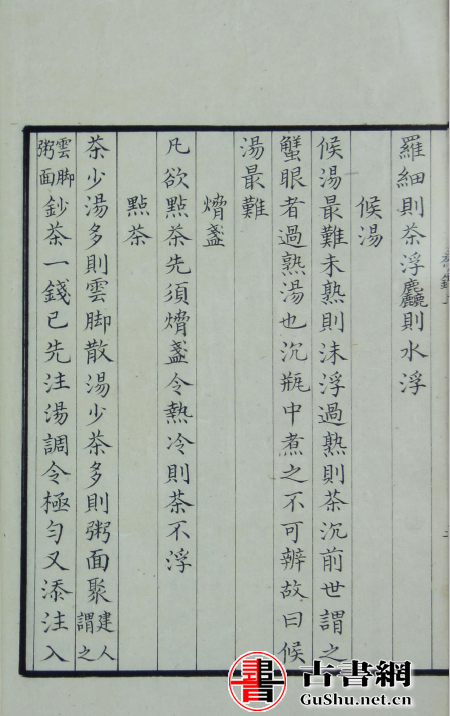 羅細則茶浮麤則水浮
候湯
候湯最難未熟則沫浮過熟則茶沉前世謂之
蟹眼者過熟湯也沉瓶中煮之不可辨故曰候
湯最難
熁盞
凡欲點茶先須熁盞令熱冷則茶不浮
點茶
茶少湯多則雲脚散湯少茶多則粥面聚建人謂之
雲脚粥面鈔茶一錢匕先注湯調令極勻又添注入
古書網
GuShu.net.cn